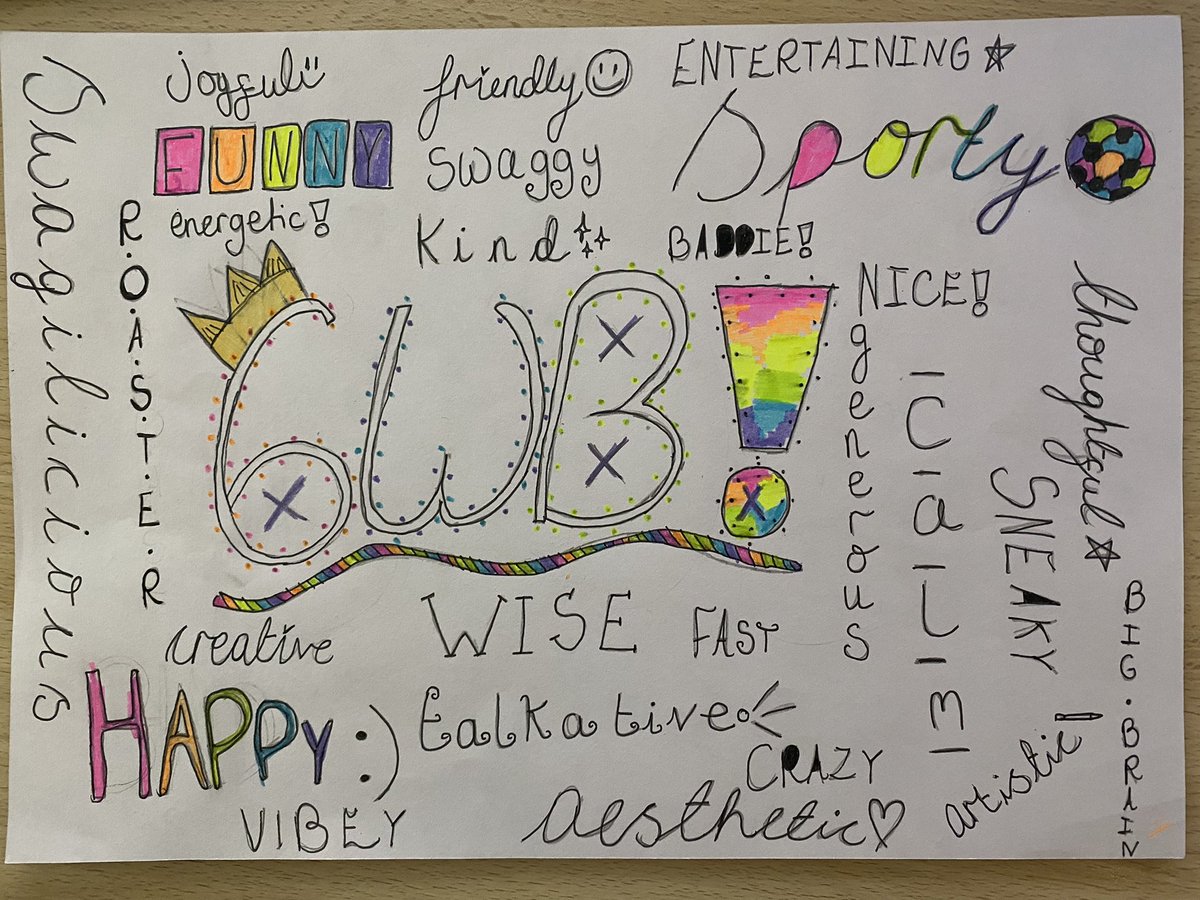 joyful
friendly
ENTERTAINING
FUNNY
swaggy
Sporty
energetic!
Kind
BADDIE!
Swagilicious
R.O.A.S.T.E.R
6WB!
NICE!
generous
CALM
thoughtful
SNEAKY
BIG.BRAIN
creative
WISE
FAST
HAPPY :)
talkative
CRAZY
artistic
VIBEY
aesthetic